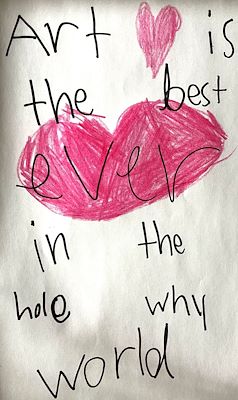 Art is
the best
ever
in the
hole why
world